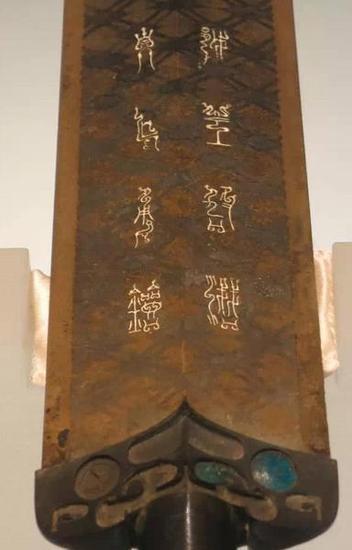 戉王鳩淺
自乍用鐱